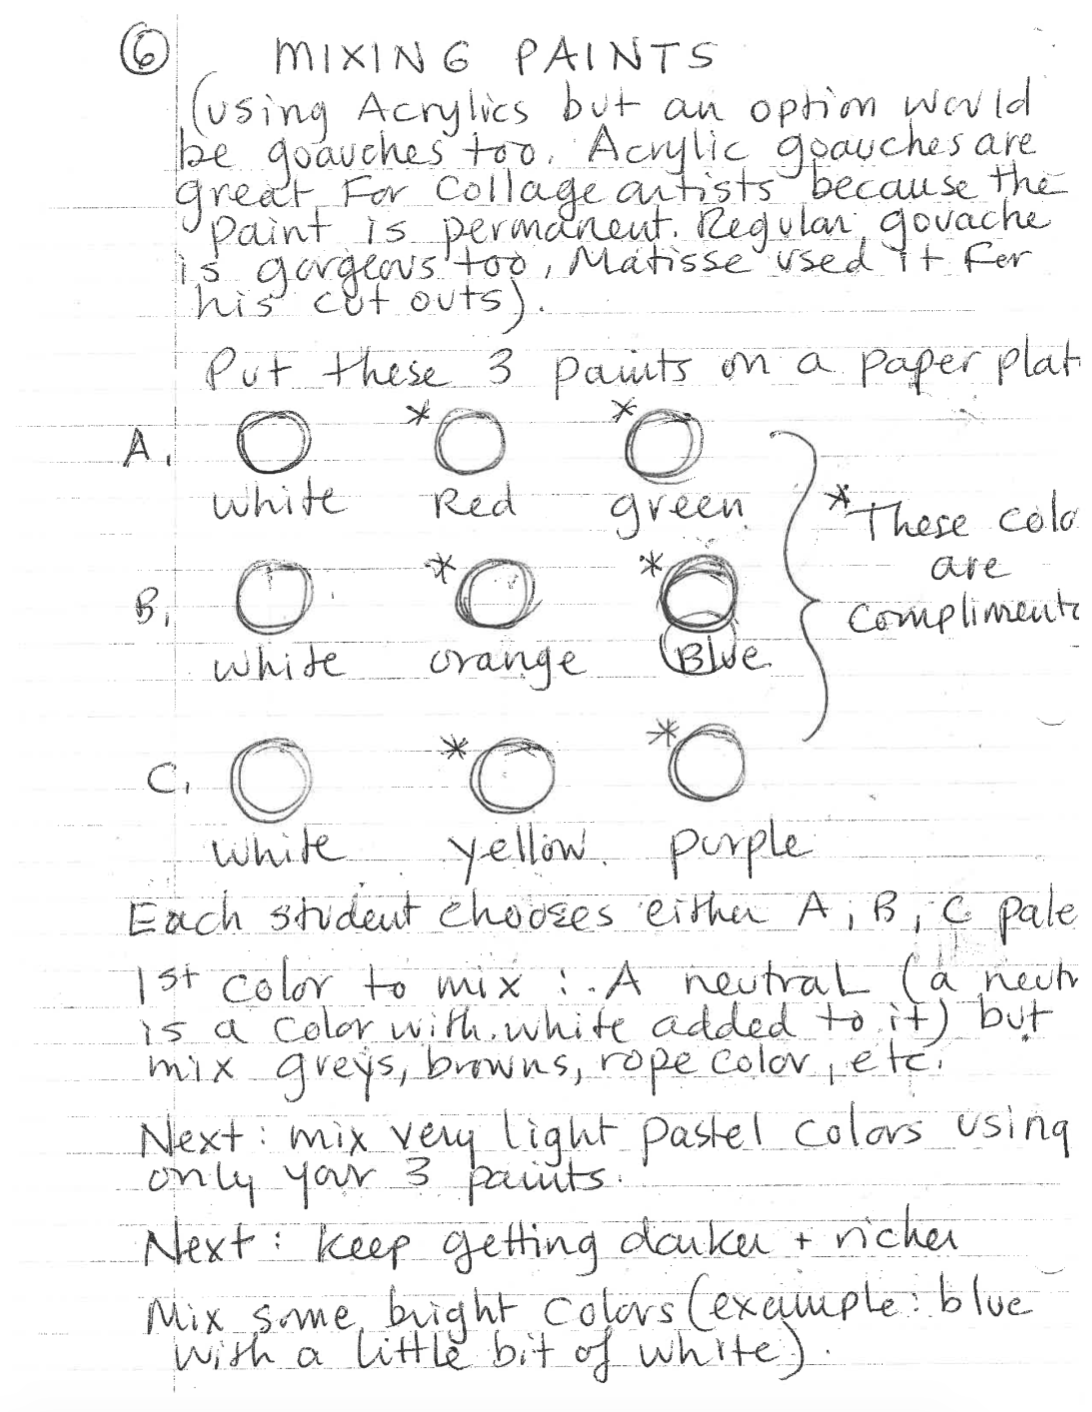 6 MIXING PAINTS
(using Acrylics but an option would
be goauches too. Acrylic goauches are
great For Collage artists because the
paint is permanent. Regular gouache
is gorgeous too, Matisse used it for
his cut outs).
Put these 3 paints on a paper plat
A. * *
white Red green
*These colo
are
Complimenta
B. * *
white orange Blue
C. * *
white yellow. purple
Each student chooses either A, B, C pale
1st color to mix : A neutral (a neutr
is a color with white added to it) but
mix greys, browns, rope color, etc.
Next: mix very light pastel colors using
only your 3 paints.
Next: keep getting darker + richer
Mix some bright colors (example: blue
with a little bit of white).